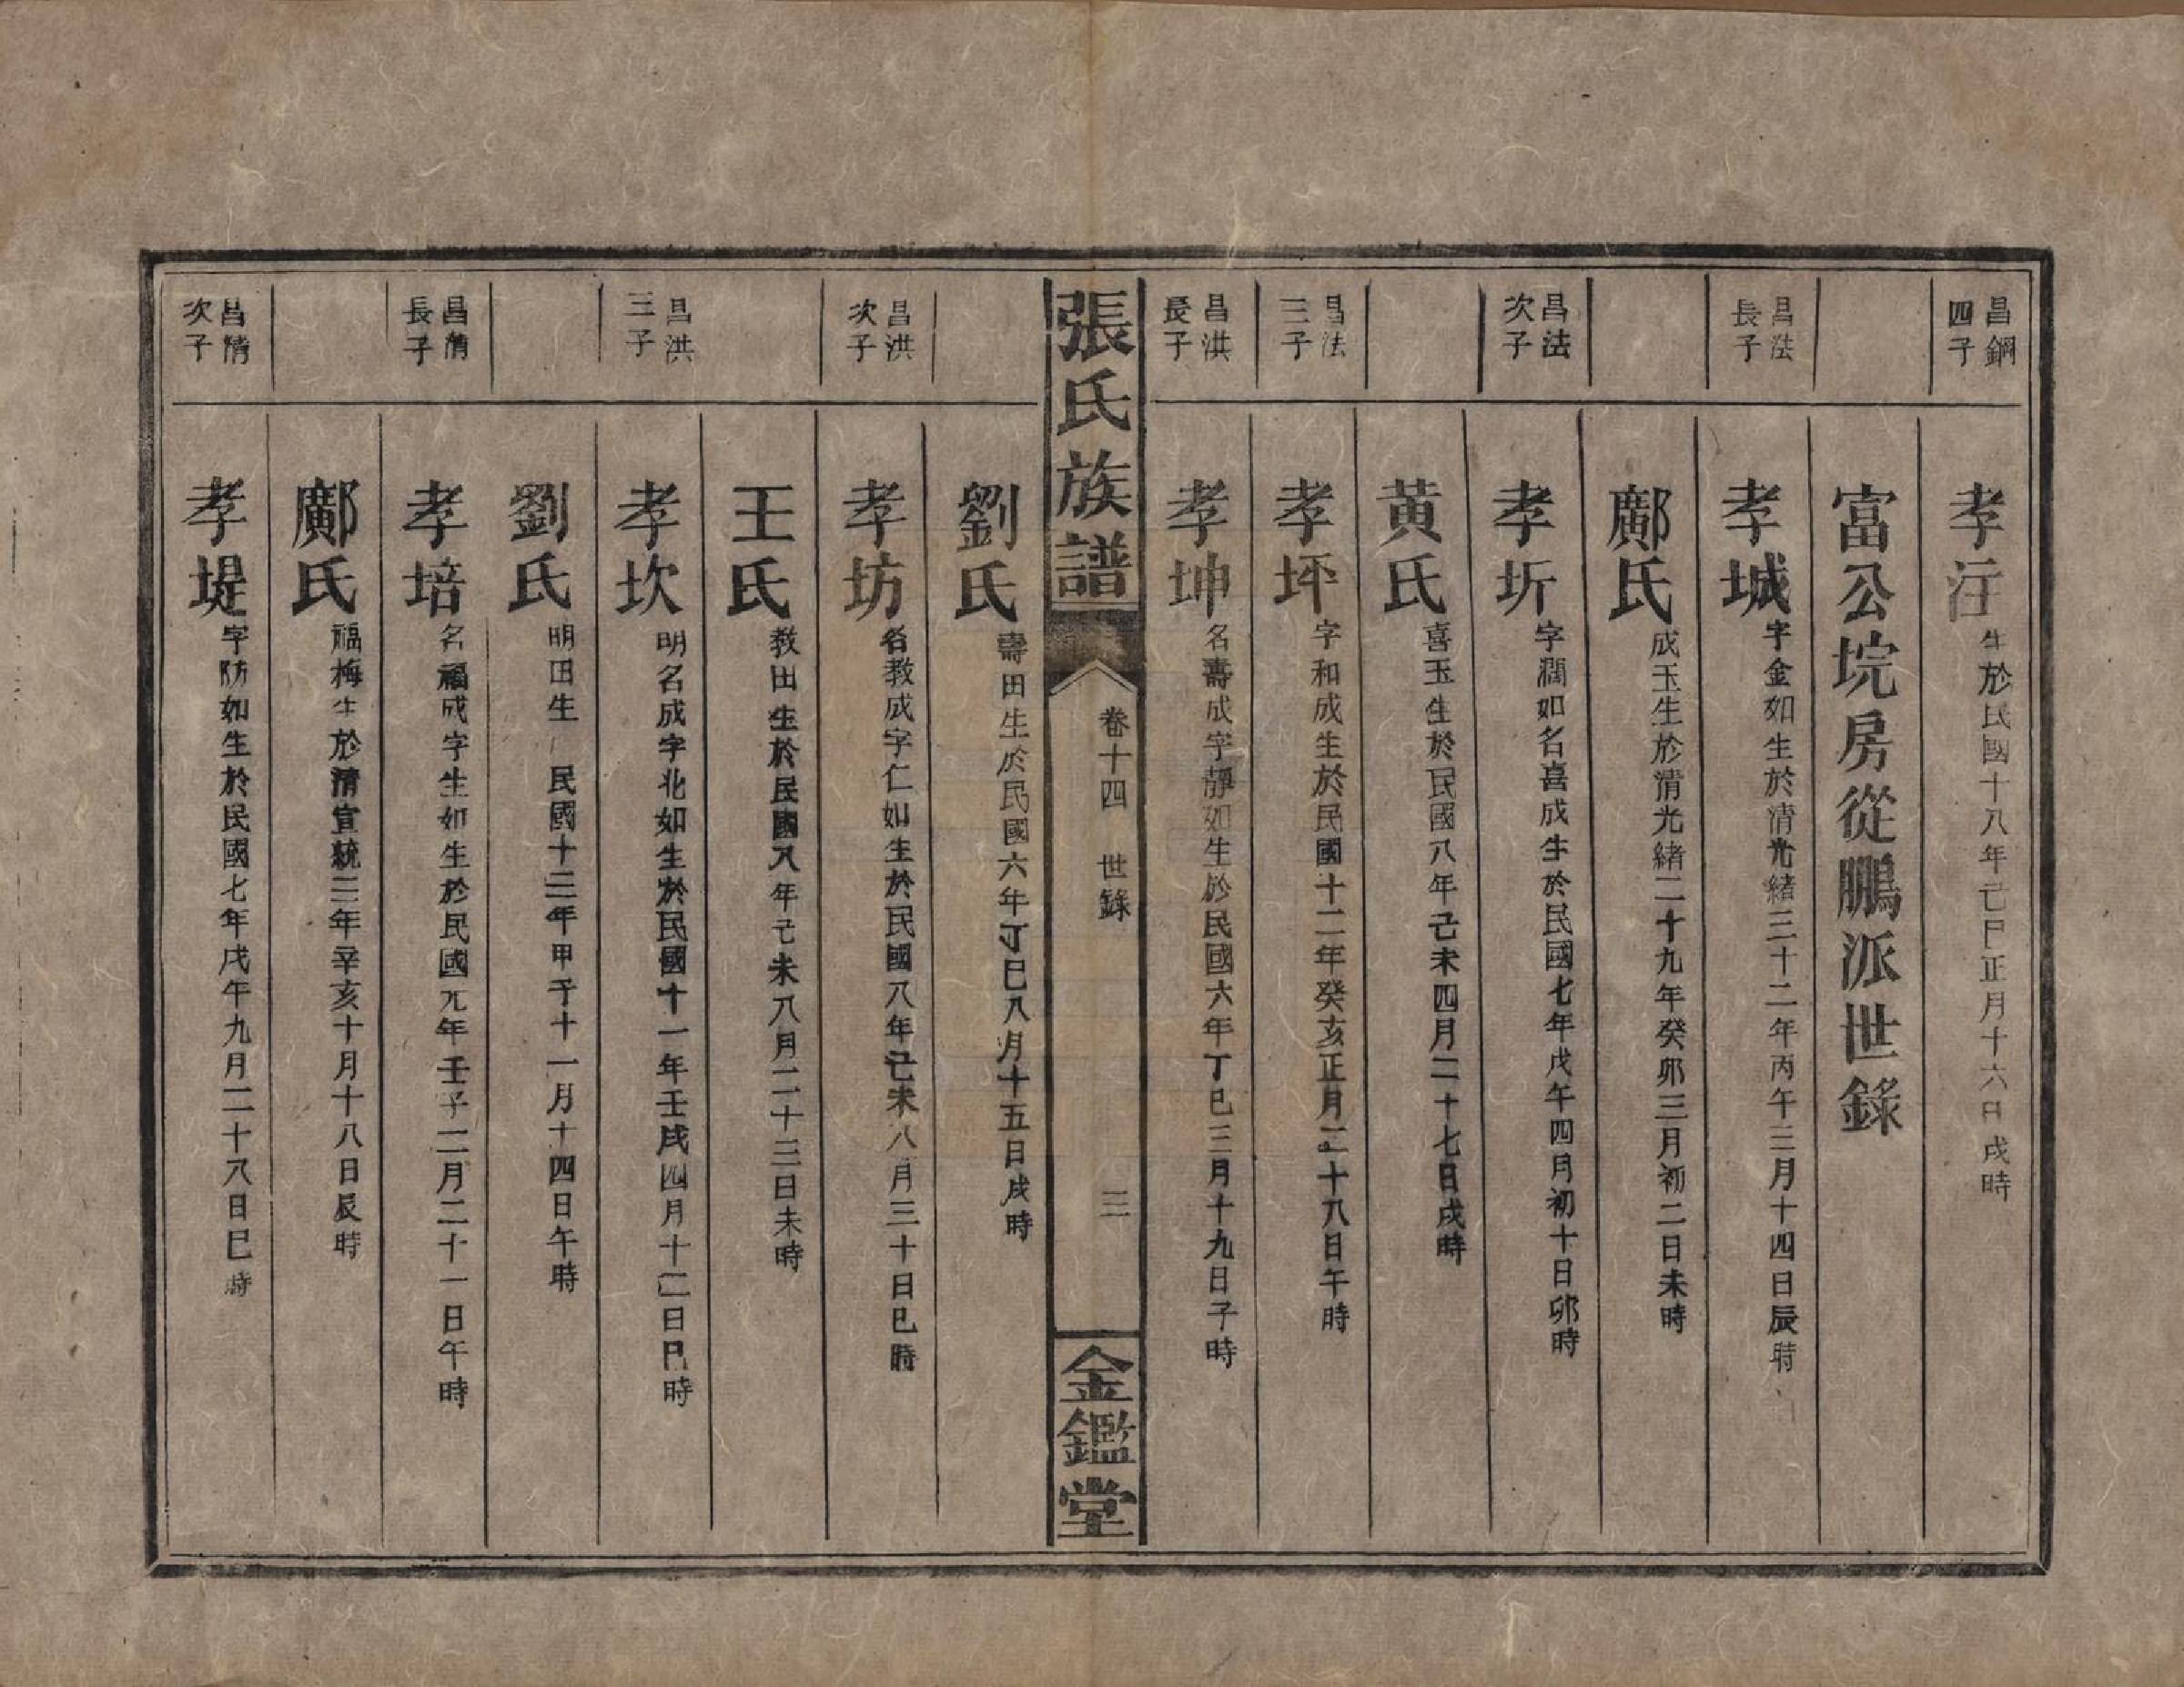 昌鋼四子
孝汪生於民國十八年己巳正月十六日戌時
富公垸房從鵬派世錄
昌法長子
孝城字金如生於清光緒三十二年丙午三月十四日辰時
鄺氏成玉生於清光緒二十九年癸卯三月初二日未時
昌法次子
孝圻字潤如名喜成生於民國七年戊午四月初十日卯時
黃氏喜玉生於民國八年己未四月二十七日戌時
昌法三子
孝坪字和成生於民國十二年癸亥正月二十八日午時
昌洪長子
孝坤名壽成字靜如生於民國六年丁巳三月十九日子時
張氏族譜
卷十四 世錄
三
金鑑堂
劉氏壽田生於民國六年丁巳八月十五日戌時
昌洪次子
孝坊名教成字仁如生於民國八年己未八月三十日巳時
王氏教田生於民國八年己未八月二十三日未時
昌洪三子
孝坎明名成字北如生於民國十一年壬戌四月十二日巳時
劉氏明田生 民國十三年甲子十一月十四日午時
昌清長子
孝培名福成字生如生於民國元年壬子二月二十一日午時
鄺氏福梅生於清宣統三年辛亥十月十八日辰時
昌清次子
孝堤字防如生於民國七年戊午九月二十八日巳時